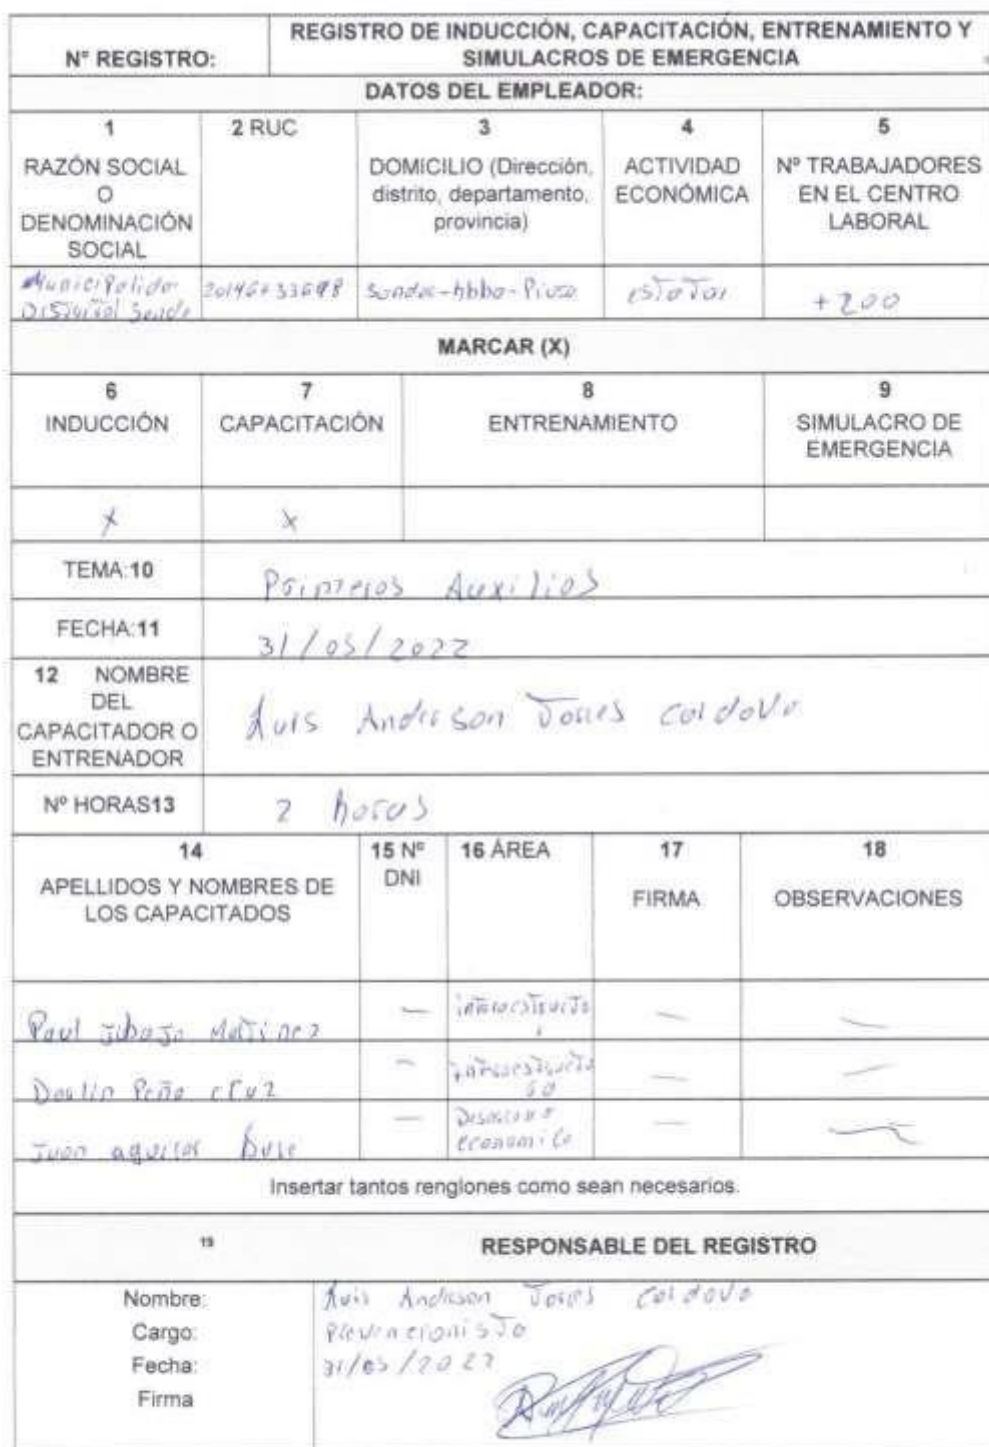 Nº REGISTRO:
REGISTRO DE INDUCCIÓN, CAPACITACIÓN, ENTRENAMIENTO Y
SIMULACROS DE EMERGENCIA
DATOS DEL EMPLEADOR:
1
RAZÓN SOCIAL
O
DENOMINACIÓN
SOCIAL
2 RUC
3
DOMICILIO (Dirección,
distrito, departamento,
provincia)
4
ACTIVIDAD
ECONÓMICA
5
Nº TRABAJADORES
EN EL CENTRO
LABORAL
Municipalida
Distrital
Sondor-hbba-Piura
estatal
+200
MARCAR (X)
6
INDUCCIÓN
7
CAPACITACIÓN
8
ENTRENAMIENTO
9
SIMULACRO DE
EMERGENCIA
X
X
TEMA:10
Primeros Auxilios
FECHA:11
31/05/2022
12 NOMBRE
DEL
CAPACITADOR O
ENTRENADOR
Luis Anderson Torres Cordova
Nº HORAS13
2 horas
14
APELLIDOS Y NOMBRES DE
LOS CAPACITADOS
15 Nº
DNI
16 ÁREA
17
FIRMA
18
OBSERVACIONES
Paul Jibaja Martinez
— — —
Peña cruz
— — —
Juan aguilar
Desarrollo
economico
— — —
Insertar tantos renglones como sean necesarios.
19
RESPONSABLE DEL REGISTRO
Nombre:
Luis Anderson Torres Cordova
Cargo:
Prevencionista
Fecha:
31/05/2022
Firma